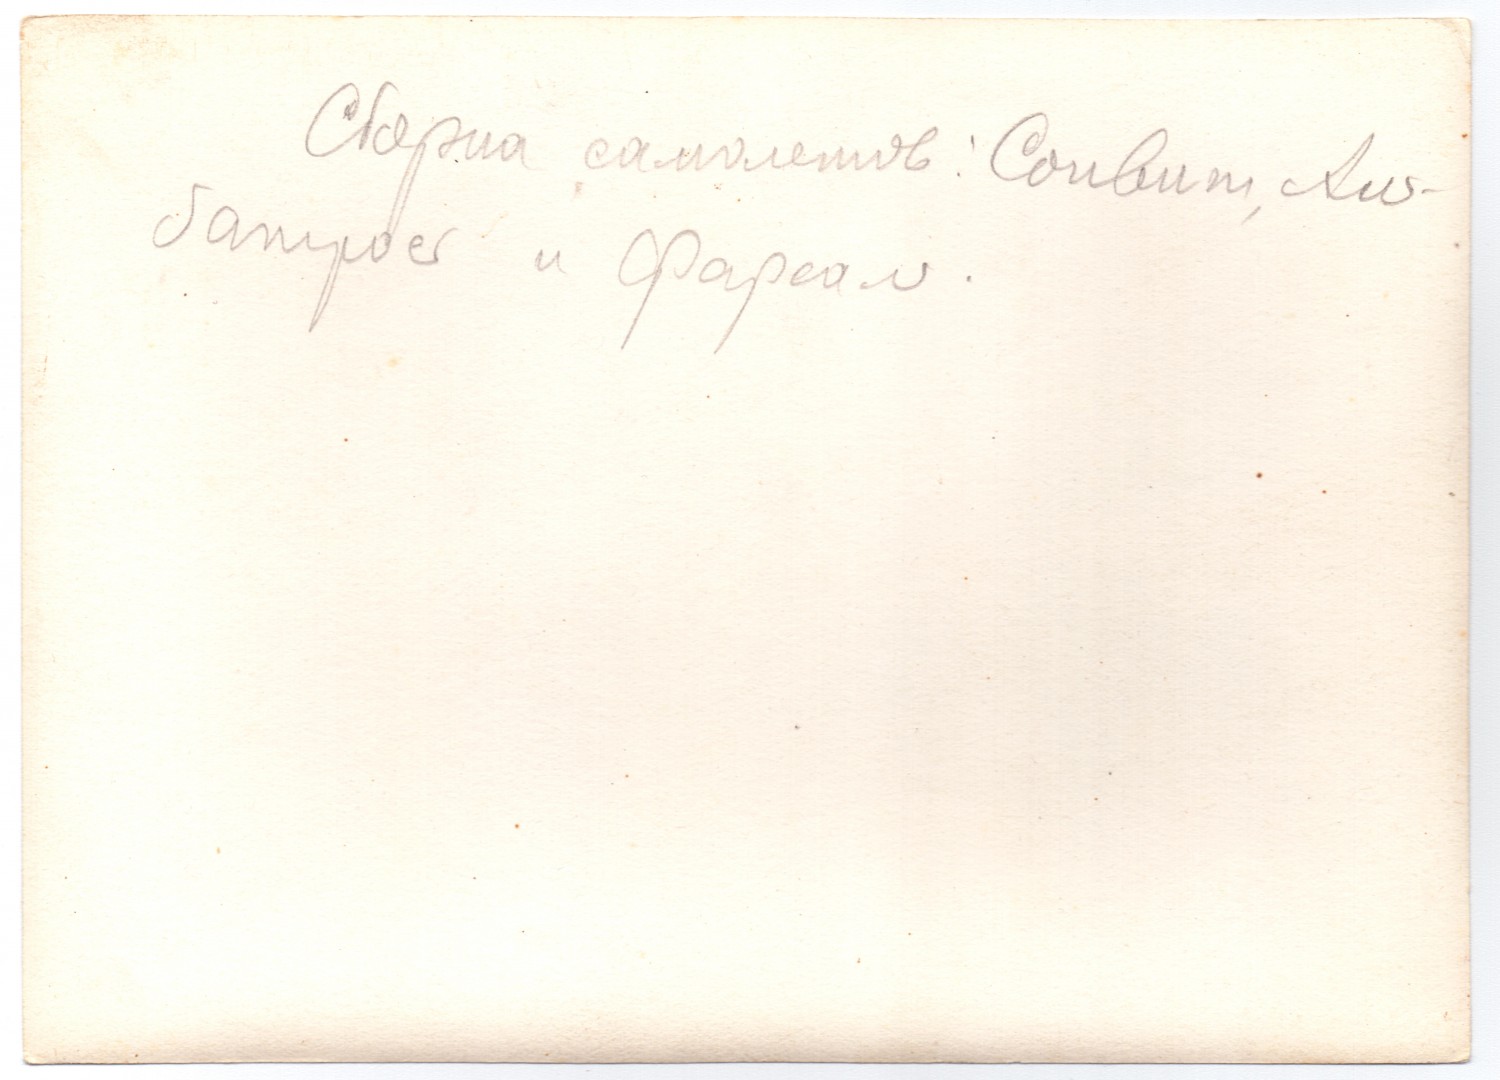 Сборка самолетов: Сопвит, Аль-
батрос и Фарсал.